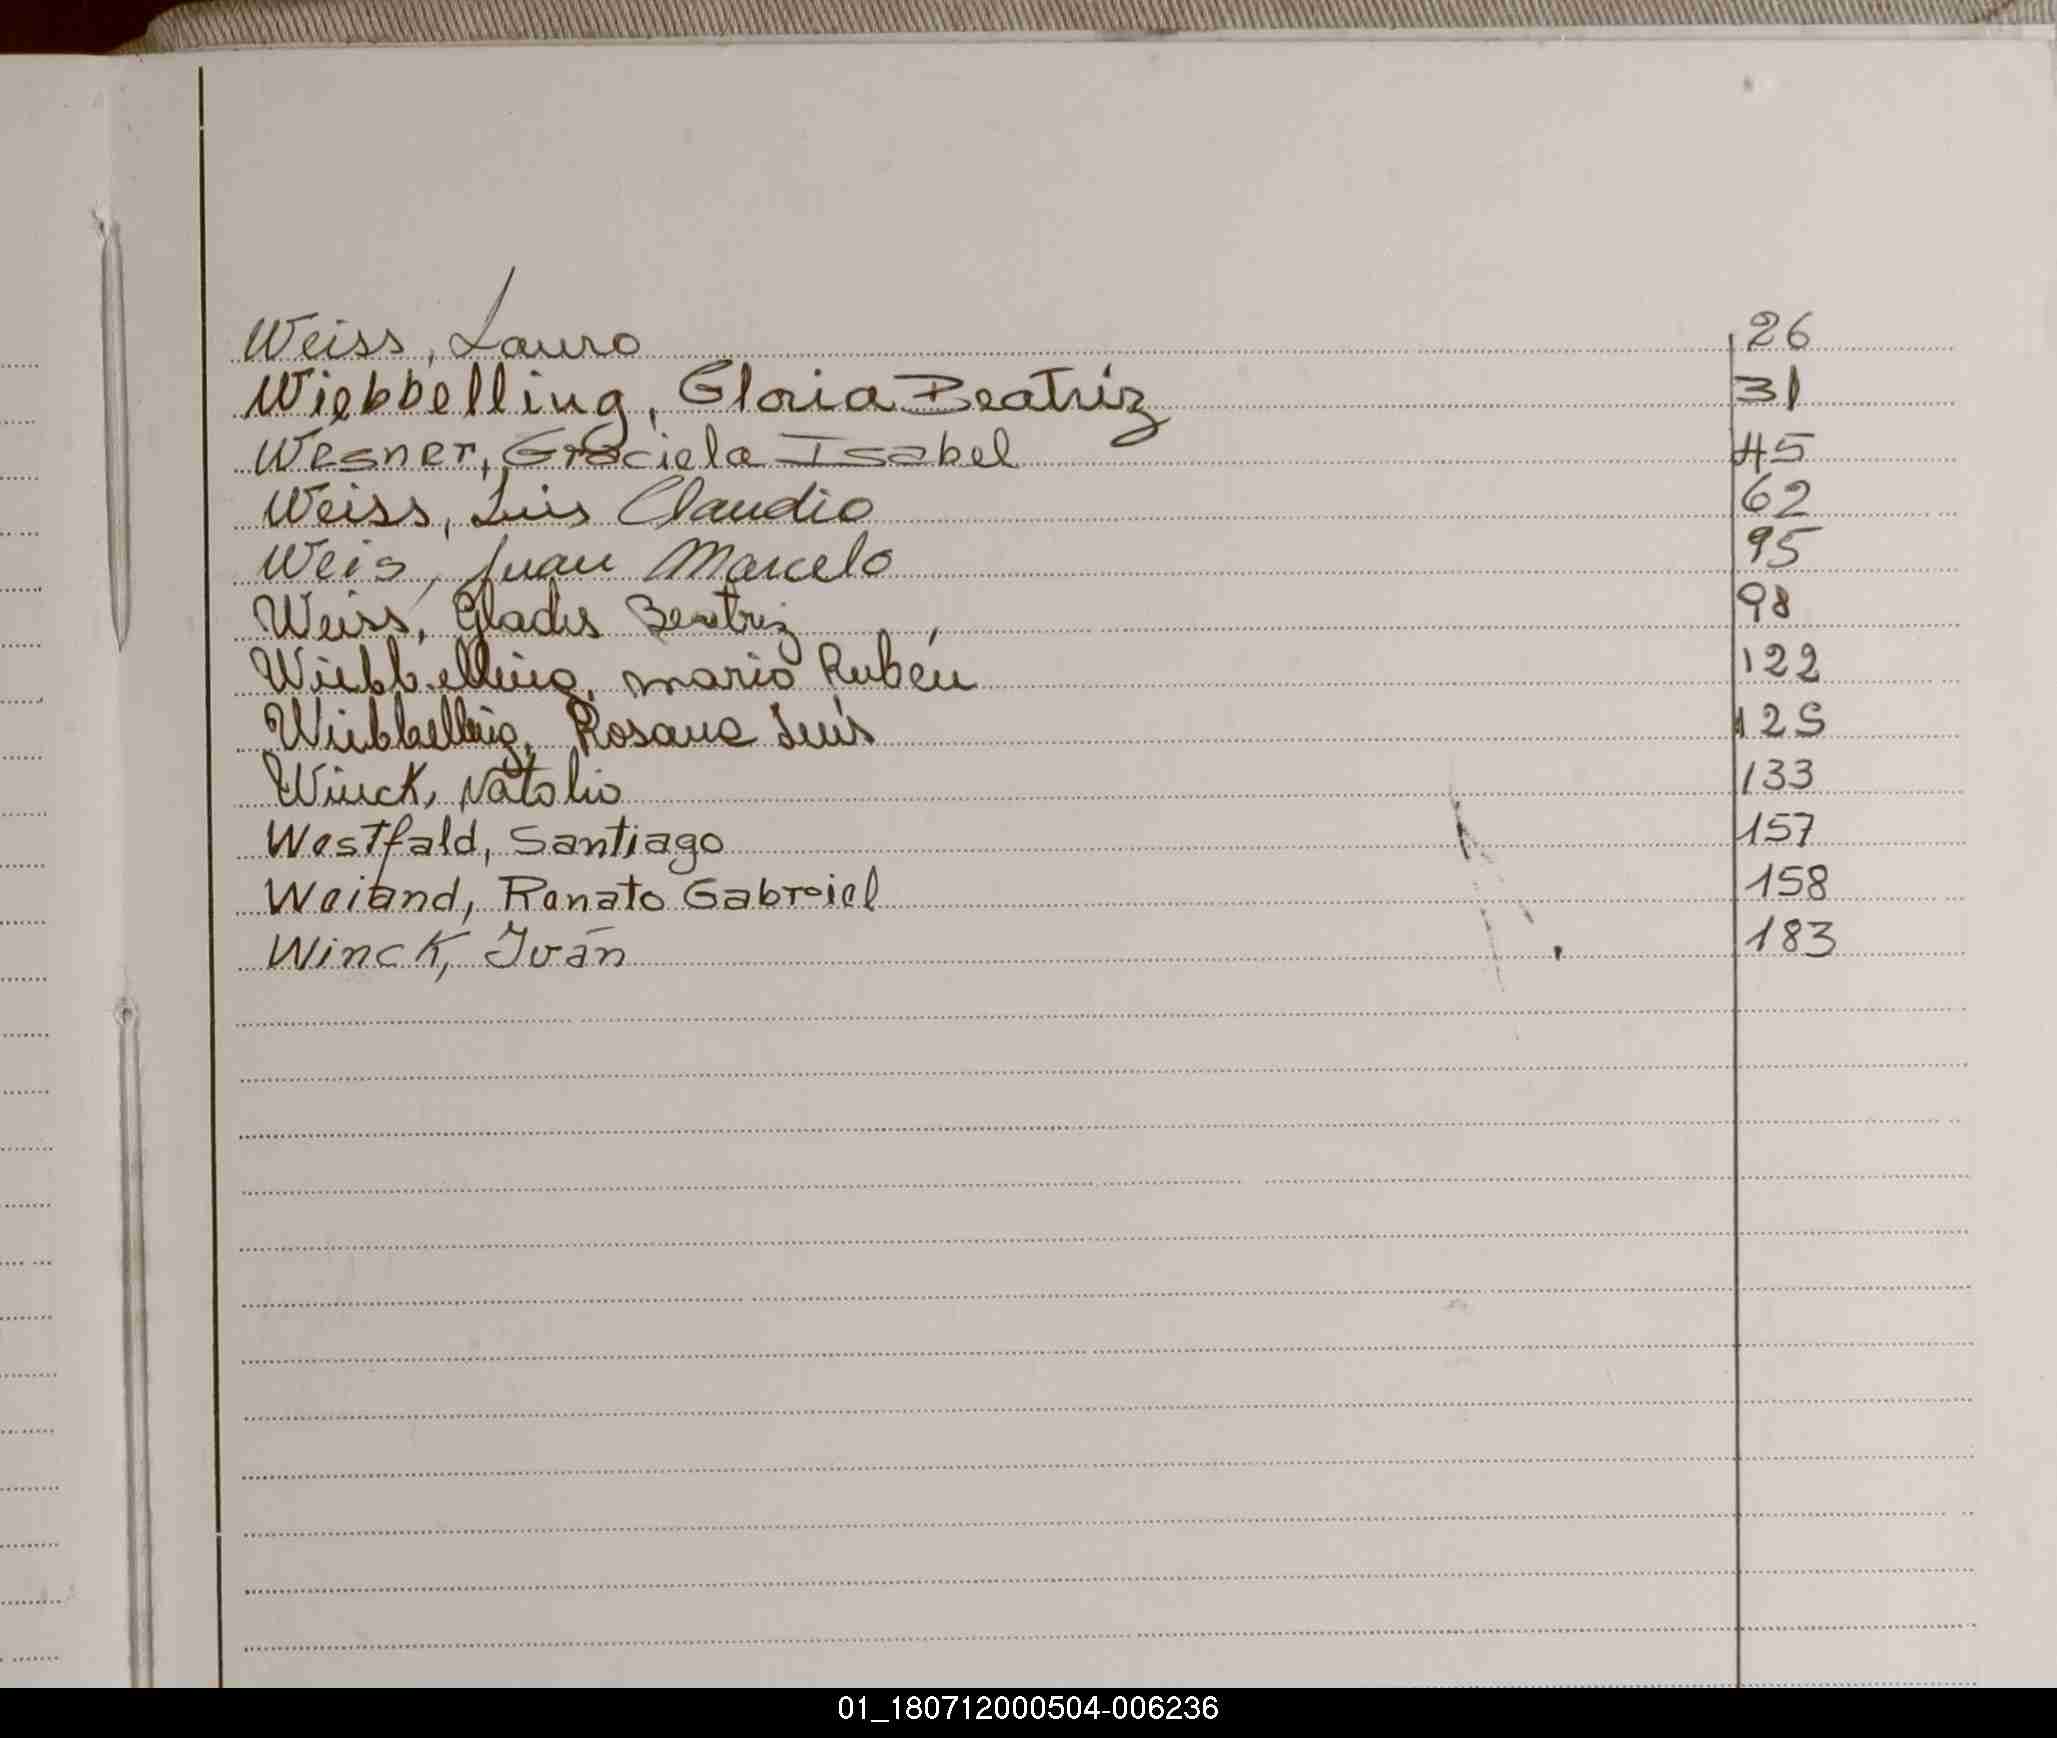 Weiss, Lauro 26
Wiebbelling, Gloria Beatriz 31
Wesner, Graciela Isabel 45
Weiss, Luis Claudio 62
Weis, Juan Marcelo 95
Weiss, Gladis Beatriz 98
Wiebbelling, Mario Rubén 122
Wiebbelling, Rosana 125
Winck, Natalio 133
Westfald, Santiago 157
Weiand, Renato Gabroiel 158
Winck, Iván 183
01_180712000504-006236